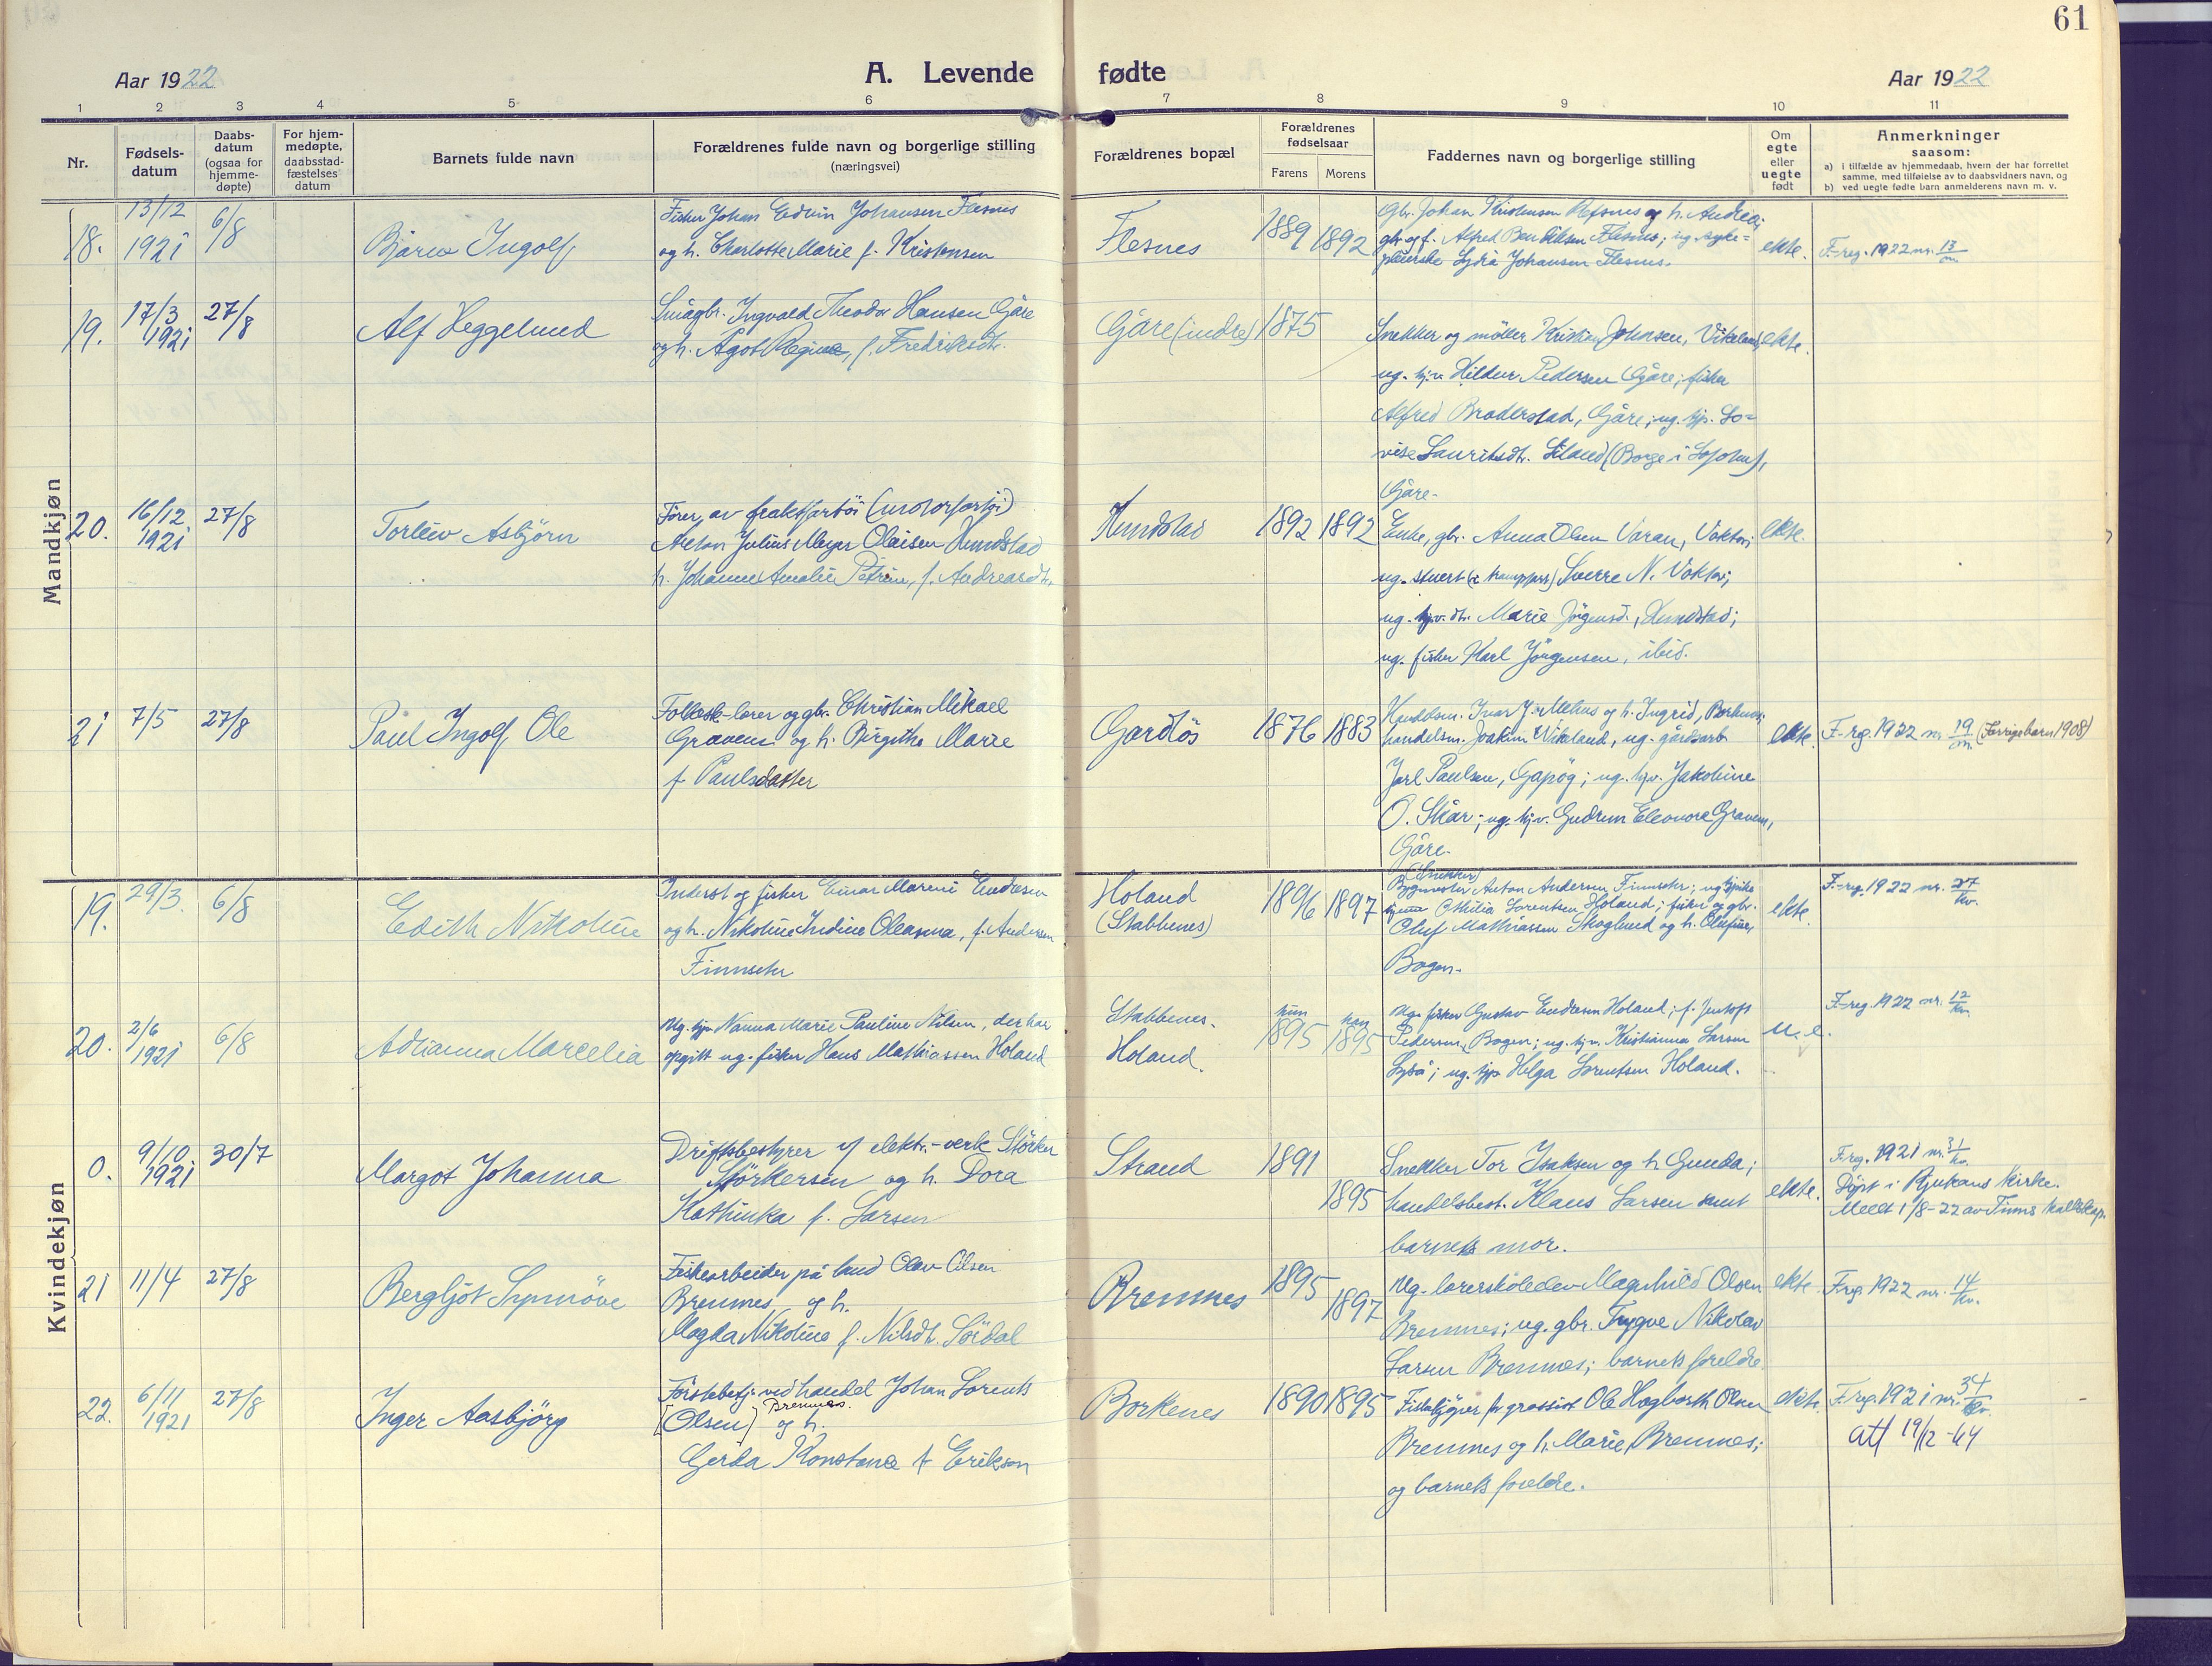 61
Aar 1922
A. Levende fødte
Aar 1922
1 2 3 4 5 6 7 8 9 10 11
Nr.
Fødsels-
datum
Daabs-
datum
(ogsaa for
hjemme-
døpte)
For hjem-
medøpte,
daabsstad-
fæstelses
datum
Barnets fulde navn
Forældrenes fulde navn og borgerlige stilling
(næringsvei)
Forældrenes bopæl
Forældrenes
fødselsaar
Farens Morens
Faddernes navn og borgerlige stilling
Om
egte
eller
uegte
født
Anmerkninger
saasom:
a) i tilfælde av hjemmedaab, hvem der har forrettet
samme, med tilføielse av to daabsvidners navn, og
b) ved uegte fødte barn anmelderens navn m. v.
Mandkjøn
18.
13/12
1921
6/8
Bjarne Ingolf
Fisker Johan Edvin Johansen Flesnes
og h. Charlotte Marie f. Kristensen
Flesnes
1889 1892
Gbr. Johan Kristensen Refsnes og h. Andrea;
gbr og f. Alfred Bendiksen Flesnes; ug. syke=
pleierske Lydia Johansen Flesnes.
ekte.
F-reg. 1922 nr. 13/m
19.
17/3
1921
27/8
Alf Heggelund
Smågbr. Ingvald Theodor Hansen Gåre
og h. Agot Regine, f. Fredriksdtr.
Gåre (indre)
1875
Snekker og møller Kristian Johnsen, Vikeland,
ug. hjv. Hildur Pedersen Gåre; fisker
Alfred Broderstad, Gåre; ug. tjp. Lo=
vise Lauritsdtr. (Borge i Lofoten),
Gåre.
ekte.
20.
16/12
1921
27/8
Torleiv Asbjörn
Fører av fraktfartöi (motorfartöi)
Anton Julius Meyer Olaisen Kundstad
h. Johanne Amalie Petrine, f. Andreasdtr.
Kundstad
1892 1892
Enke, gbr. Anna Olsen Voktor;
ug. stuert Sverre N. Voktor;
ug. hjv. dtr. Marie Jörgensd., Kundstad;
ug. fisker Karl Jörgensen, ibid.
ekte.
21
7/5
27/8
Paul Ingolf Ole
Folkesk-lærer og gbr. Christian Mikael
Gravem og h. Birgithe Marie
f Paulsdatter
Gardlös
1876 1883
Handelsm. Ivar J. Melhus og h. Ingrid, Borkenes;
handelsm. Joakim Vikeland, ug. gårdsarb.
Jarl Paulsen, Gapög; ug. hjv. Jakobine
O. Skår; ug. hjv. Gudrun Eleonore Gravem,
Gåre.
ekte.
F-rg. 1922 nr 19/m (Forrige barn 1908)
Kvindekjøn
19.
29/3.
6/8
Edith Nikoline
Inderst og fisker Einar Mareni Endresen
og h. Nikoline Indine Oleanna, f. Andersen
Finnseter
Holand
(Stabbenes)
1896 1897
(Snekker)
Bygmester Anton Andersen Finnseter;
Othilia Lorentsen Holand; fisker og gbr.
Oluf Mathiassen Skoglund og h. Olufine,
Bogen.
ekte.
F-reg. 1922 nr. 27/kv.
20.
2/6
1921
6/8
Adrianna Marcelia
Ug. tjp Nanna Marie Pauline Nilsen, der har
opgitt ug. fisker Hans Mathiassen Holand
Stabbenes.
Holand.
hun
1895
han
1895
Ug. fisker Gustav Endresen Holand; f. Jentoft
Pedersen, Bogen; ug. hjv. Kristianna Larsen
ug. tjp Helga Lorentsen Holand.
u. e.
F-reg. 1922 nr. 12/kv.
0.
9/10
1921
30/7
Margot Johanna
Driftsbestyrer v/ elektr.-verk Störker
Störkersen og h. Dora
Kathinka f. Larsen
Strand
1891
1895
Snekker Tor Isaksen og h Gunda;
handelsbest. Klaus Larsen samt
barnets mor.
ekte.
F-reg. 1921 nr. 31/kv.
Döpt i Rjukans kirke.
Meldt 1/8-22 av Tinns kallskap.
21
11/4
27/8
Bergljot Synnöve
Fiskearbeider på land Olav Olsen
Bremnes og h.
Magda Nikoline f. Nilsdt. Sördal
Bremnes
1895
1897
Ug. lærerskoleelev Magnhild Olsen
Bremnes; ug. gbr. Trygve Nikolai
Larsen Bremnes; barnets foreldre
ekte.
F-reg. 1922 nr. 14/kv.
22.
6/11
1921
27/8
Inger Aasbjörg
Förstebetj. ved handel Johan Lorents
[Olsen] Bremnes. og h.
Gerda Konstanse f Erikson
Borkenes
1890 1895
Fiskekjöper for grossist Ole Hagbarth Olsen
Bremnes og h. Marie, Bremnes;
og barnets foreldre.
ekte.
F-reg. 1921 nr. 34/kv.
att 19/12-44